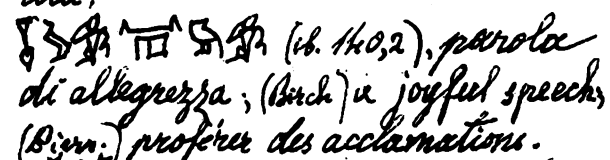 (ib. 140,2), parola
di allegrezza; (Birch) ie joyful speech;
(Pierr.) proférer des acclamations.